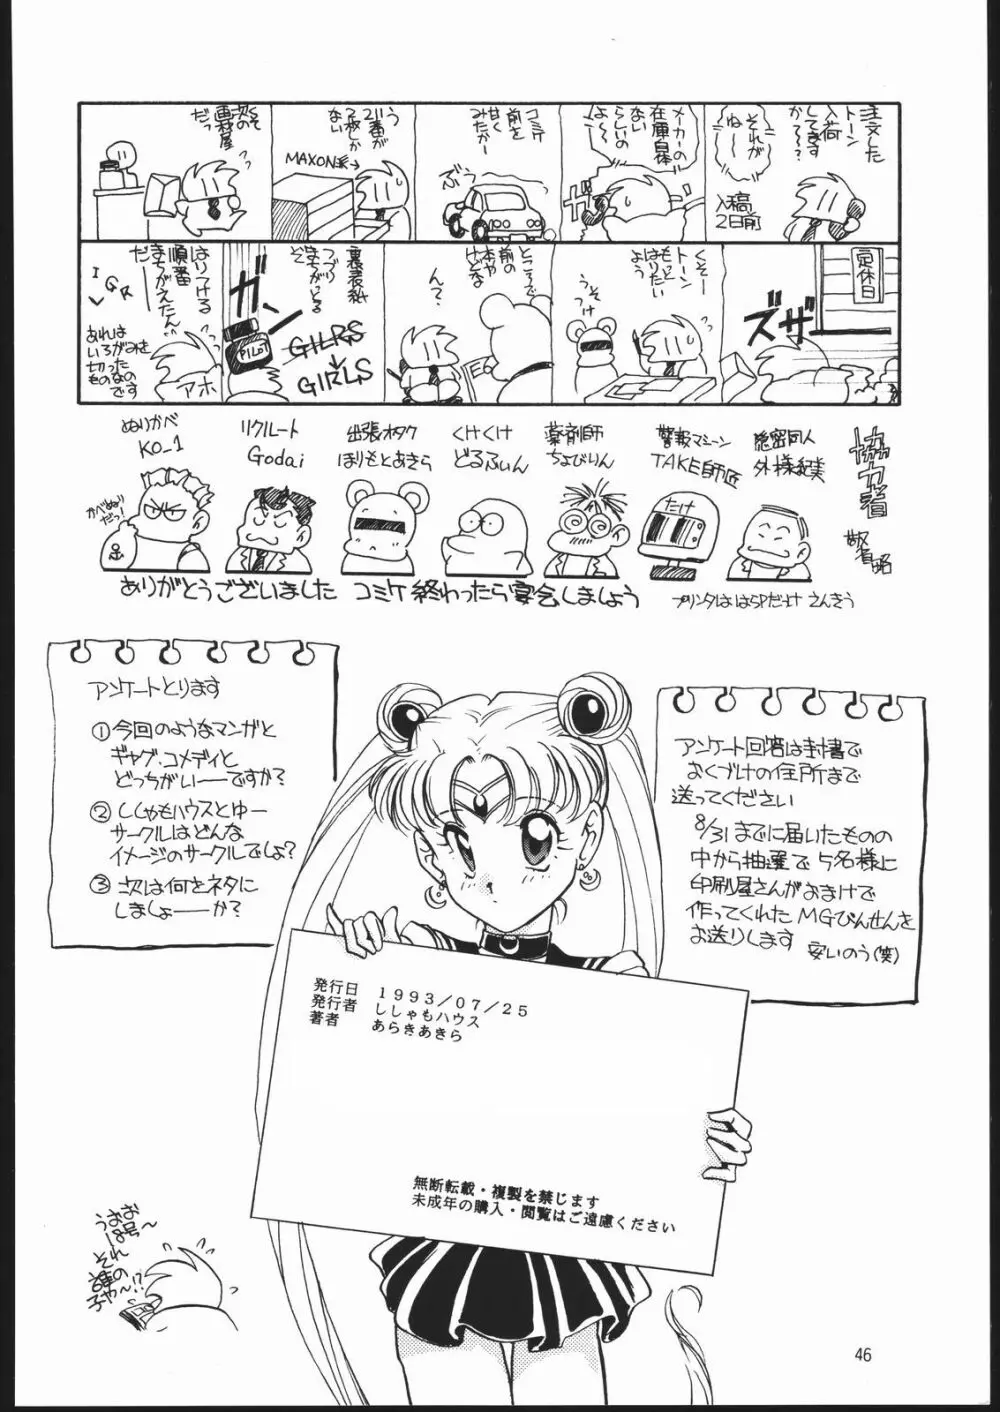 注文した
トーン
入荷
してます
か〜？
それが
ねー
入稿
2日前
メーカーの
在庫自体
ない
らしいの
よ〜〜
ガ
コミケ
前を
甘く
みたかー
ぶう
う
21番が
2枚しか
ない
MAXON系→
くそ
次の
画材屋
だっ
定休日
ズザ
くそー
トーン
もっと
はりたい
よう
うそつけ
ところで
前の
本や
けどな
ん？
裏表紙
つづり
まちがっとる
ぞ
ガ
PILOT
GILRS
↓
GIRLS
はりつける
順番
まちがえたんや
だー
I
GR
あれは
いろがみを
切った
ものなの
です
アホ
協力者
敬省略
ぬりかべ
KO_1
かべぬり
だっ！
リクルート
Godai
出張オタク
ほりもとあきら
くけくけ
どるふぃん
薬剤師
ちょびりん
警報マシーン
TAKE師匠
たけ
隠密同人
外様誠実
ありがとうございました コミケ終わったら宴会しましょう
プリンタは はらPだっけ さんきう
アンケートとります
①今回のようなマンガと
ギャグ・コメディと
どっちがいーーですか？
②ししゃもハウスとゆー
サークルはどんな
イメージのサークルでしょ？
③次は何をネタに
しましょーーか？
アンケート回答は封書で
おくづけの住所まで
送ってください
8/31までに届いたものの
中から抽選で5名様に
印刷屋さんがおまけで
作ってくれたMGびんせんを
お送りします 安いのう(笑)
発行日 1993/07/25
発行者 ししゃもハウス
著者 あらきあきら
無断転載・複製を禁じます
未成年の購入・閲覧はご遠慮ください
うおお
18号〜
それ
誰の
子や〜!?
46